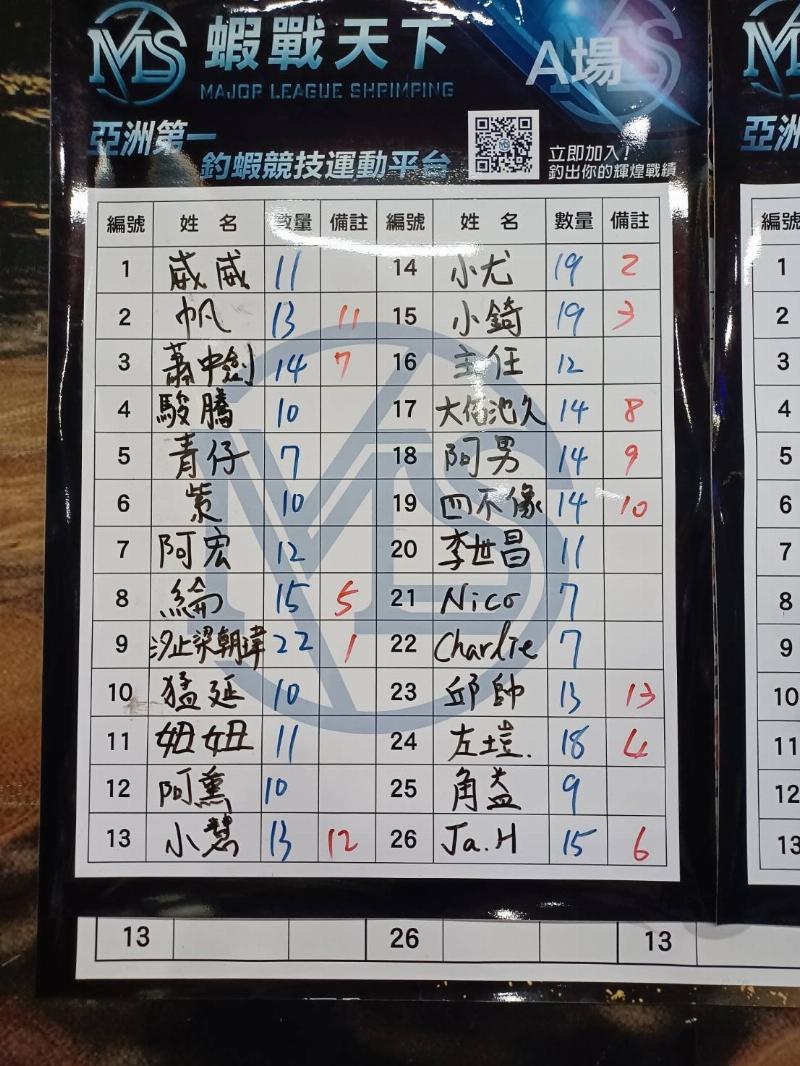 MLS 蝦戰天下 A場
MAJOR LEAGUE SHRIMPING
亞洲第一
釣蝦競技運動平台
立即加入!
釣出你的輝煌戰績
編號 姓名 數量 備註 編號 姓名 數量 備註
1 威威 11 14 小尤 19 2
2 帆 13 11 15 小錡 19 3
3 蕭中劍 14 7 16 主任 12
4 駿騰 10 17 大佰池久 14 8
5 青仔 7 18 阿男 14 9
6 紫 10 19 四不像 14 10
7 阿宏 12 20 李世昌 11
8 綸 15 5 21 Nico 7
9 汐止梁朝瑋 22 1 22 Charlie 7
10 猛延 10 23 邱帥 13 13
11 妞妞 11 24 左塏. 18 4
12 阿薰 10 25 角益 9
13 小慧 13 12 26 Ja.H 15 6
13 26 13
亞洲
編號
1
2
3
4
5
6
7
8
9
10
11
12
13